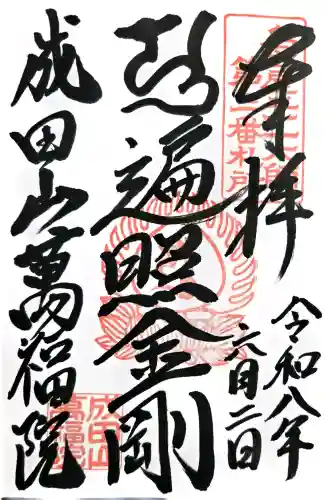 奉拝
令和八年
六月二日
遍照金剛
成田山萬福院
第二番札所
成田山
萬福院